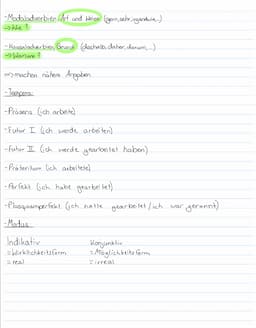 -Modaladverbien: Art und Weise (gern, sehr, irgendwie,...)
→ Wie?
-Kausaladverbien: Grund (deshalb, daher, darum,...)
→ Warum?
=> machen nähere Angaben
-Tempora:
-Präsens (ich arbeite)
-Futur I (ich werde arbeiten)
-Futur II (ich werde gearbeitet haben)
-Präteritum (ich arbeitete)
-Perfekt (ich habe gearbeitet)
-Plusquamperfekt (ich hatte gearbeitet / ich war gerannt)
-Modus:
Indikativ Konjunktiv
= Wirklichkeitsform = Möglichkeitsform
= real = irreal